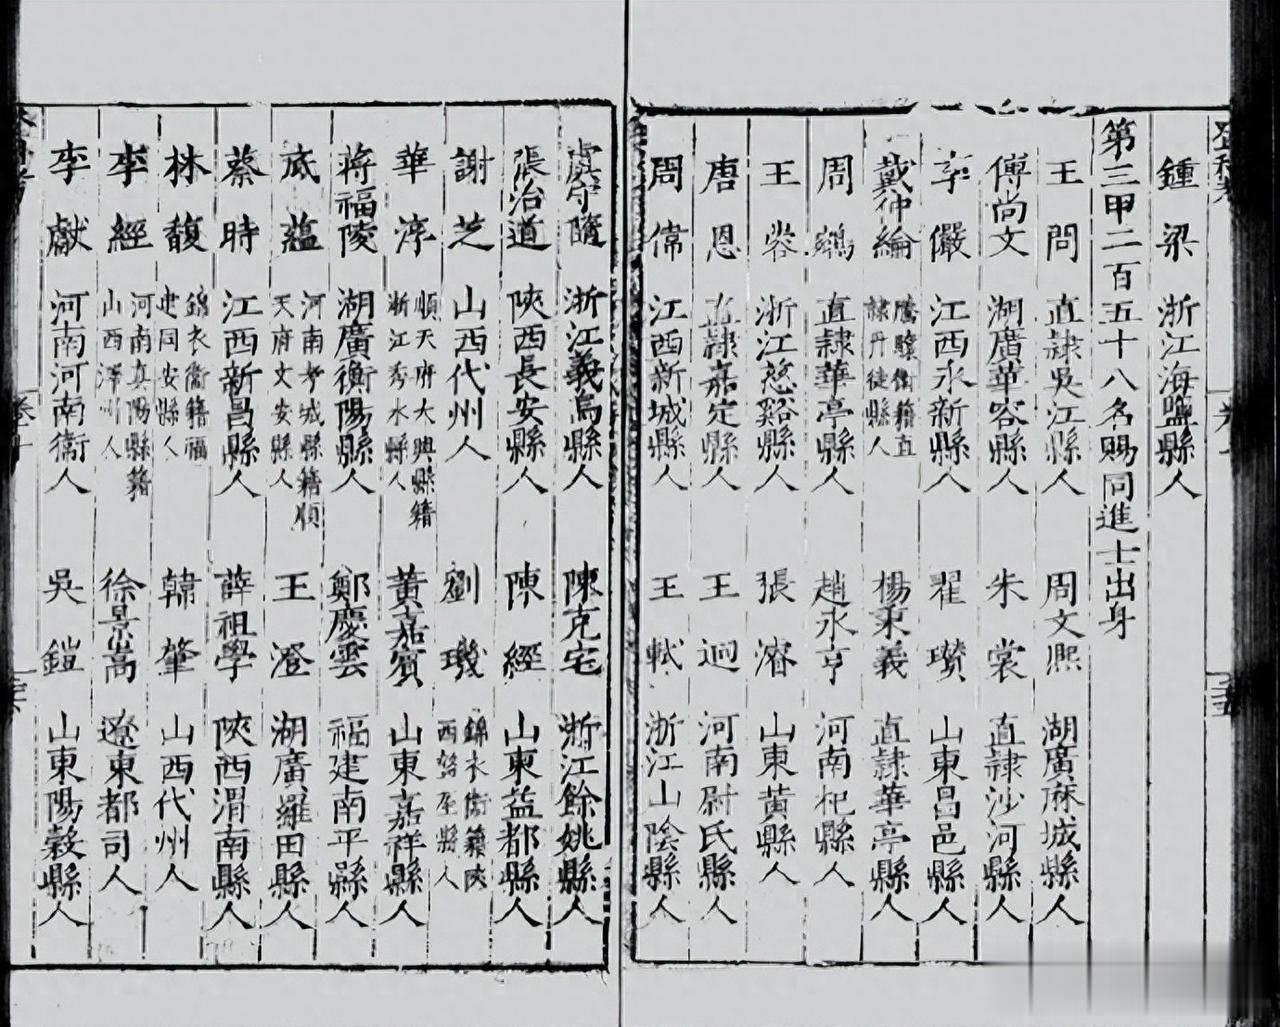 鍾梁 浙江海鹽縣人
第三甲二百五十八名賜同進士出身
王問 直隸吳江縣人 周文熙 湖廣麻城縣人
傅尚文 湖廣華容縣人 朱裳 直隸沙河縣人
李儼 江西永新縣人 翟瓚 山東昌邑縣人
戴仲綸 騰驤衛籍直隸丹徒縣人 楊秉義 直隸華亭縣人
周鵷 直隸華亭縣人 趙永亨 河南杞縣人
王 浙江慈谿縣人 張濬 山東黃縣人
唐恩 直隸嘉定縣人 王迥 河南尉氏縣人
周偉 江西新城縣人 王軾 浙江山陰縣人
虞守隨 浙江義烏縣人 陳克宅 浙江餘姚縣人
張治道 陝西長安縣人 陳經 山東益都縣人
謝芝 山西代州人 劉璣 錦衣衛籍陝西盩厔縣人
華淳 順天府大興縣籍浙江秀水縣人 黃嘉賓 山東嘉祥縣人
蔣福陵 湖廣衡陽縣人 鄭慶雲 福建南平縣人
底蘊 河南考城縣籍順天府文安縣人 王澄 湖廣羅田縣人
蔡時 江西新昌縣人 薛祖學 陝西渭南縣人
林馥 錦衣衛籍福建同安縣人 韓肇 山西代州人
李經 河南真陽縣籍山西澤州人 徐景嵩 遼東都司人
李獻 河南河南衛人 吳鎧 山東陽穀縣人